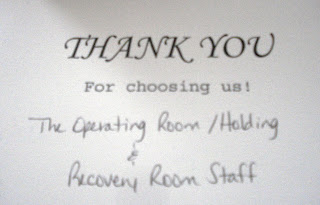 THANK YOU
For choosing us!
The Operating Room / Holding
&
Recovery Room Staff